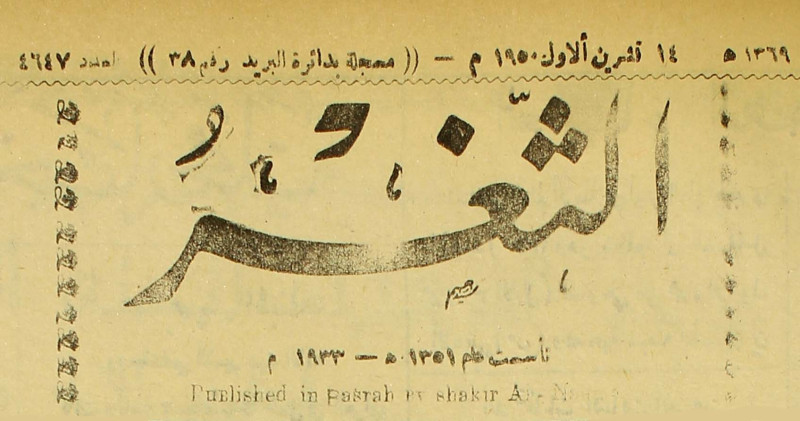 ١٣٦٩ ه ١٤ تشرين ألاول ١٩٥٠ م — (( مسجلة بدائرة البريد رقم ٣٨ )) العدد ٤٦٤٧
الثَّغْرُ
تأسست عام ١٣٥١ ه — ١٩٣٣ م
Published in Basrah by shakir An-